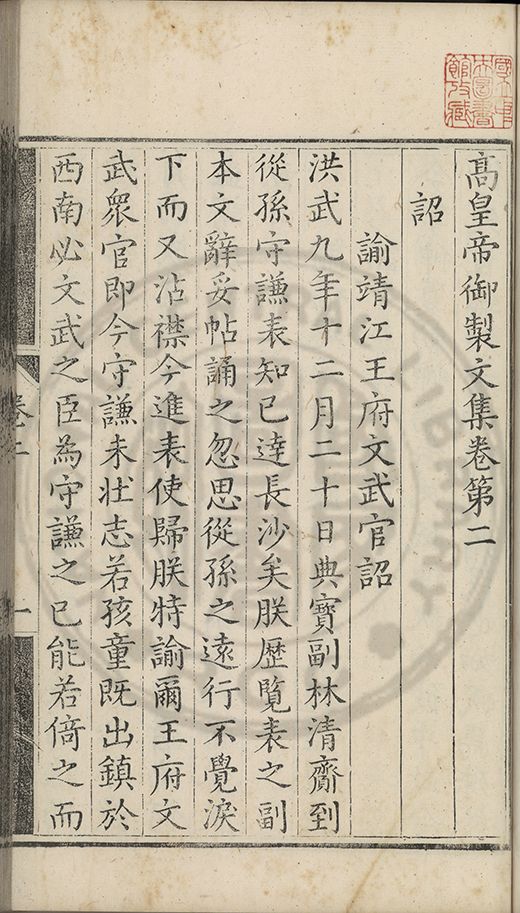 高皇帝御製文集卷第二
詔
諭靖江王府文武官詔
洪武九年十二月二十日典寶副林清齎到
從孫守謙表知已達長沙矣朕歷覽表之副
本文辭妥帖誦之忽思從孫之遠行不覺淚
下而又沾襟今進表使歸朕特諭爾王府文
武眾官即今守謙未壯志若孩童既出鎮於
西南必文武之臣為守謙之已能若倚之而
卷二
一